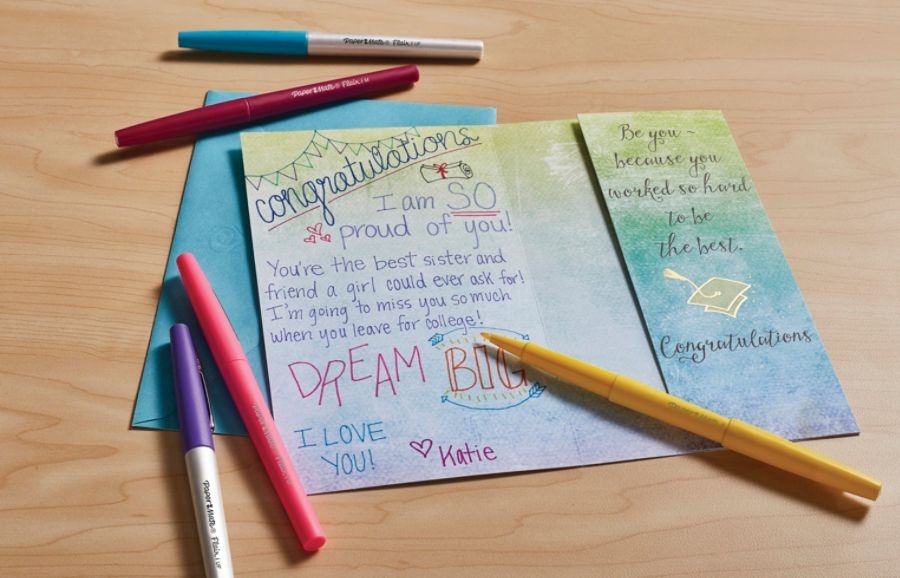 Paper Mate® Flair. | UF
Paper Mate® Flair. | M
congratulations
I am SO
proud of you!
You're the best sister and
friend a girl could ever ask for!
I'm going to miss you so much
when you leave for college!
DREAM BIG
I LOVE
YOU!
Katie
Be you ~
because you
worked so hard
to be
the best.
Congratulations
Paper Mate® Flair. | UF